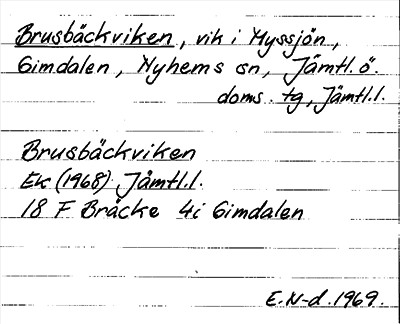 Brusbäckviken, vik i Hyssjön,
Gimdalen, Nyhems sn, Jämtl. ö.
doms. tg, Jämtl.l.
Brusbäckviken
Ek (1968) Jämtl.l.
18 F Bräcke 4i Gimdalen
E.N-d. 1969.